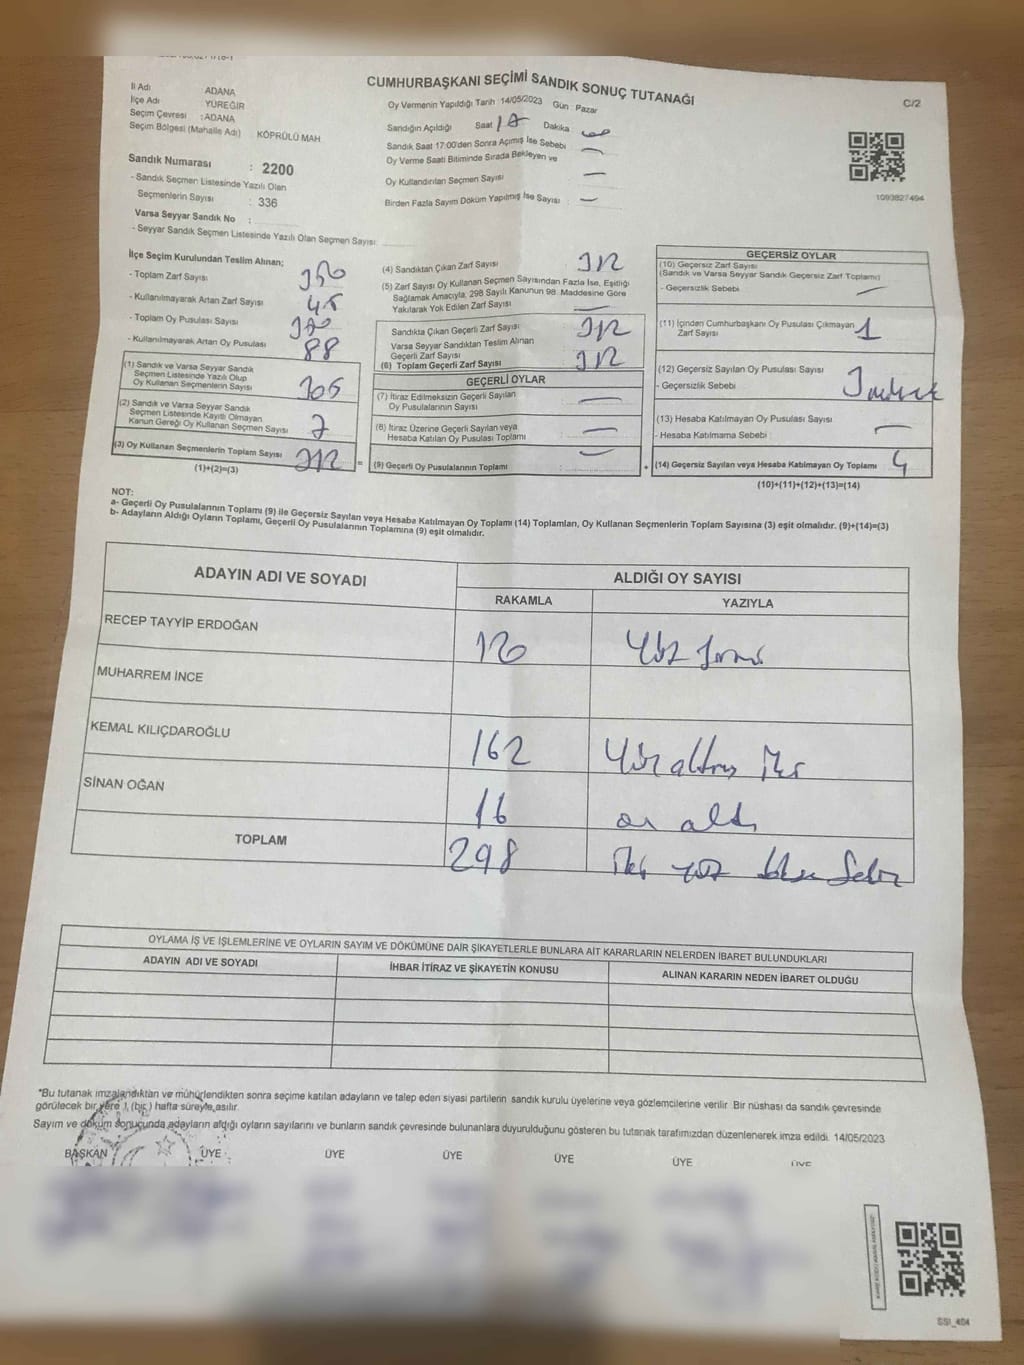 CUMHURBAŞKANI SEÇİMİ SANDIK SONUÇ TUTANAĞI
C/2
İl Adı ADANA
İlçe Adı YÜREĞİR
Seçim Çevresi : ADANA
Seçim Bölgesi (Mahalle Adı) KÖPRÜLÜ MAH
Sandık Numarası : 2200
- Sandık Seçmen Listesinde Yazılı Olan
Seçmenlerin Sayısı : 336
Varsa Seyyar Sandık No :
- Seyyar Sandık Seçmen Listesinde Yazılı Olan Seçmen Sayısı:
Oy Vermenin Yapıldığı Tarih 14/05/2023 Gün : Pazar
Sandığın Açıldığı Saat Dakika
Sandık Saat 17:00'den Sonra Açımış İse Sebebi
Oy Verme Saati Bitiminde Sırada Bekleyen ve
Oy Kullandırılan Seçmen Sayısı —
Birden Fazla Sayım Döküm Yapılmış İse Sayısı : —
1093827494
İlçe Seçim Kurulundan Teslim Alınan;
- Toplam Zarf Sayısı
- Kullanılmayarak Artan Zarf Sayısı
- Toplam Oy Pusulası Sayısı
- Kullanılmayarak Artan Oy Pusulası 88
(1) Sandık ve Varsa Seyyar Sandık
Seçmen Listesinde Yazılı Olup
Oy Kullanan Seçmenlerin Sayısı 305
(2) Sandık ve Varsa Seyyar Sandık
Seçmen Listesinde Kayıtlı Olmayan
Kanun Gereği Oy Kullanan Seçmen Sayısı 7
(3) Oy Kullanan Seçmenlerin Toplam Sayısı 312
(1)+(2)=(3)
(4) Sandıktan Çıkan Zarf Sayısı 312
(5) Zarf Sayısı Oy Kullanan Seçmen Sayısından Fazla İse, Eşitliği
Sağlamak Amacıyla, 298 Sayılı Kanunun 98. Maddesine Göre
Yakılarak Yok Edilen Zarf Sayısı —
Sandıkta Çıkan Geçerli Zarf Sayısı 312
Varsa Seyyar Sandıktan Teslim Alınan
Geçerli Zarf Sayısı
(6) Toplam Geçerli Zarf Sayısı 312
GEÇERLİ OYLAR
(7) İtiraz Edilmeksizin Geçerli Sayılan
Oy Pusulalarının Sayısı —
(8) İtiraz Üzerine Geçerli Sayılan veya
Hesaba Katılan Oy Pusulası Toplamı —
= (9) Geçerli Oy Pusulalarının Toplamı : —
GEÇERSİZ OYLAR
(10) Geçersiz Zarf Sayısı
(Sandık ve Varsa Seyyar Sandık Geçersiz Zarf Toplamı)
- Geçersizlik Sebebi —
(11) İçinden Cumhurbaşkanı Oy Pusulası Çıkmayan
Zarf Sayısı 1
(12) Geçersiz Sayılan Oy Pusulası Sayısı
- Geçersizlik Sebebi
(13) Hesaba Katılmayan Oy Pusulası Sayısı —
- Hesaba Katılmama Sebebi
+ (14) Geçersiz Sayılan veya Hesaba Katılmayan Oy Toplamı
(10)+(11)+(12)+(13)=(14)
NOT:
a- Geçerli Oy Pusulalarının Toplamı (9) ile Geçersiz Sayılan veya Hesaba Katılmayan Oy Toplamı (14) Toplamları, Oy Kullanan Seçmenlerin Toplam Sayısına (3) eşit olmalıdır. (9)+(14)=(3)
b- Adayların Aldığı Oyların Toplamı, Geçerli Oy Pusulalarının Toplamına (9) eşit olmalıdır.
ADAYIN ADI VE SOYADI ALDIĞI OY SAYISI
RAKAMLA YAZIYLA
RECEP TAYYİP ERDOĞAN 120 Yüz yirmi
MUHARREM İNCE
KEMAL KILIÇDAROĞLU 162 Yüz altmış iki
SİNAN OĞAN 16 on altı
TOPLAM 298 iki yüz doksan sekiz
OYLAMA İŞ VE İŞLEMLERİNE VE OYLARIN SAYIM VE DÖKÜMÜNE DAİR ŞİKAYETLERLE BUNLARA AİT KARARLARIN NELERDEN İBARET BULUNDUKLARI
ADAYIN ADI VE SOYADI İHBAR İTİRAZ VE ŞİKAYETİN KONUSU ALINAN KARARIN NEDEN İBARET OLDUĞU
*Bu tutanak imzalandıktan ve mühürlendikten sonra seçime katılan adayların ve talep eden siyasi partilerin sandık kurulu üyelerine veya gözlemcilerine verilir. Bir nüshası da sandık çevresinde
görülecek bir yere 1, (bir) hafta süreyle asılır.
Sayım ve döküm sonucunda adayların aldığı oyların sayılarını ve bunların sandık çevresinde bulunanlara duyurulduğunu gösteren bu tutanak tarafımızdan düzenlenerek imza edildi. 14/05/2023
BAŞKAN ÜYE ÜYE ÜYE ÜYE ÜYE ÜYE
SSI_404